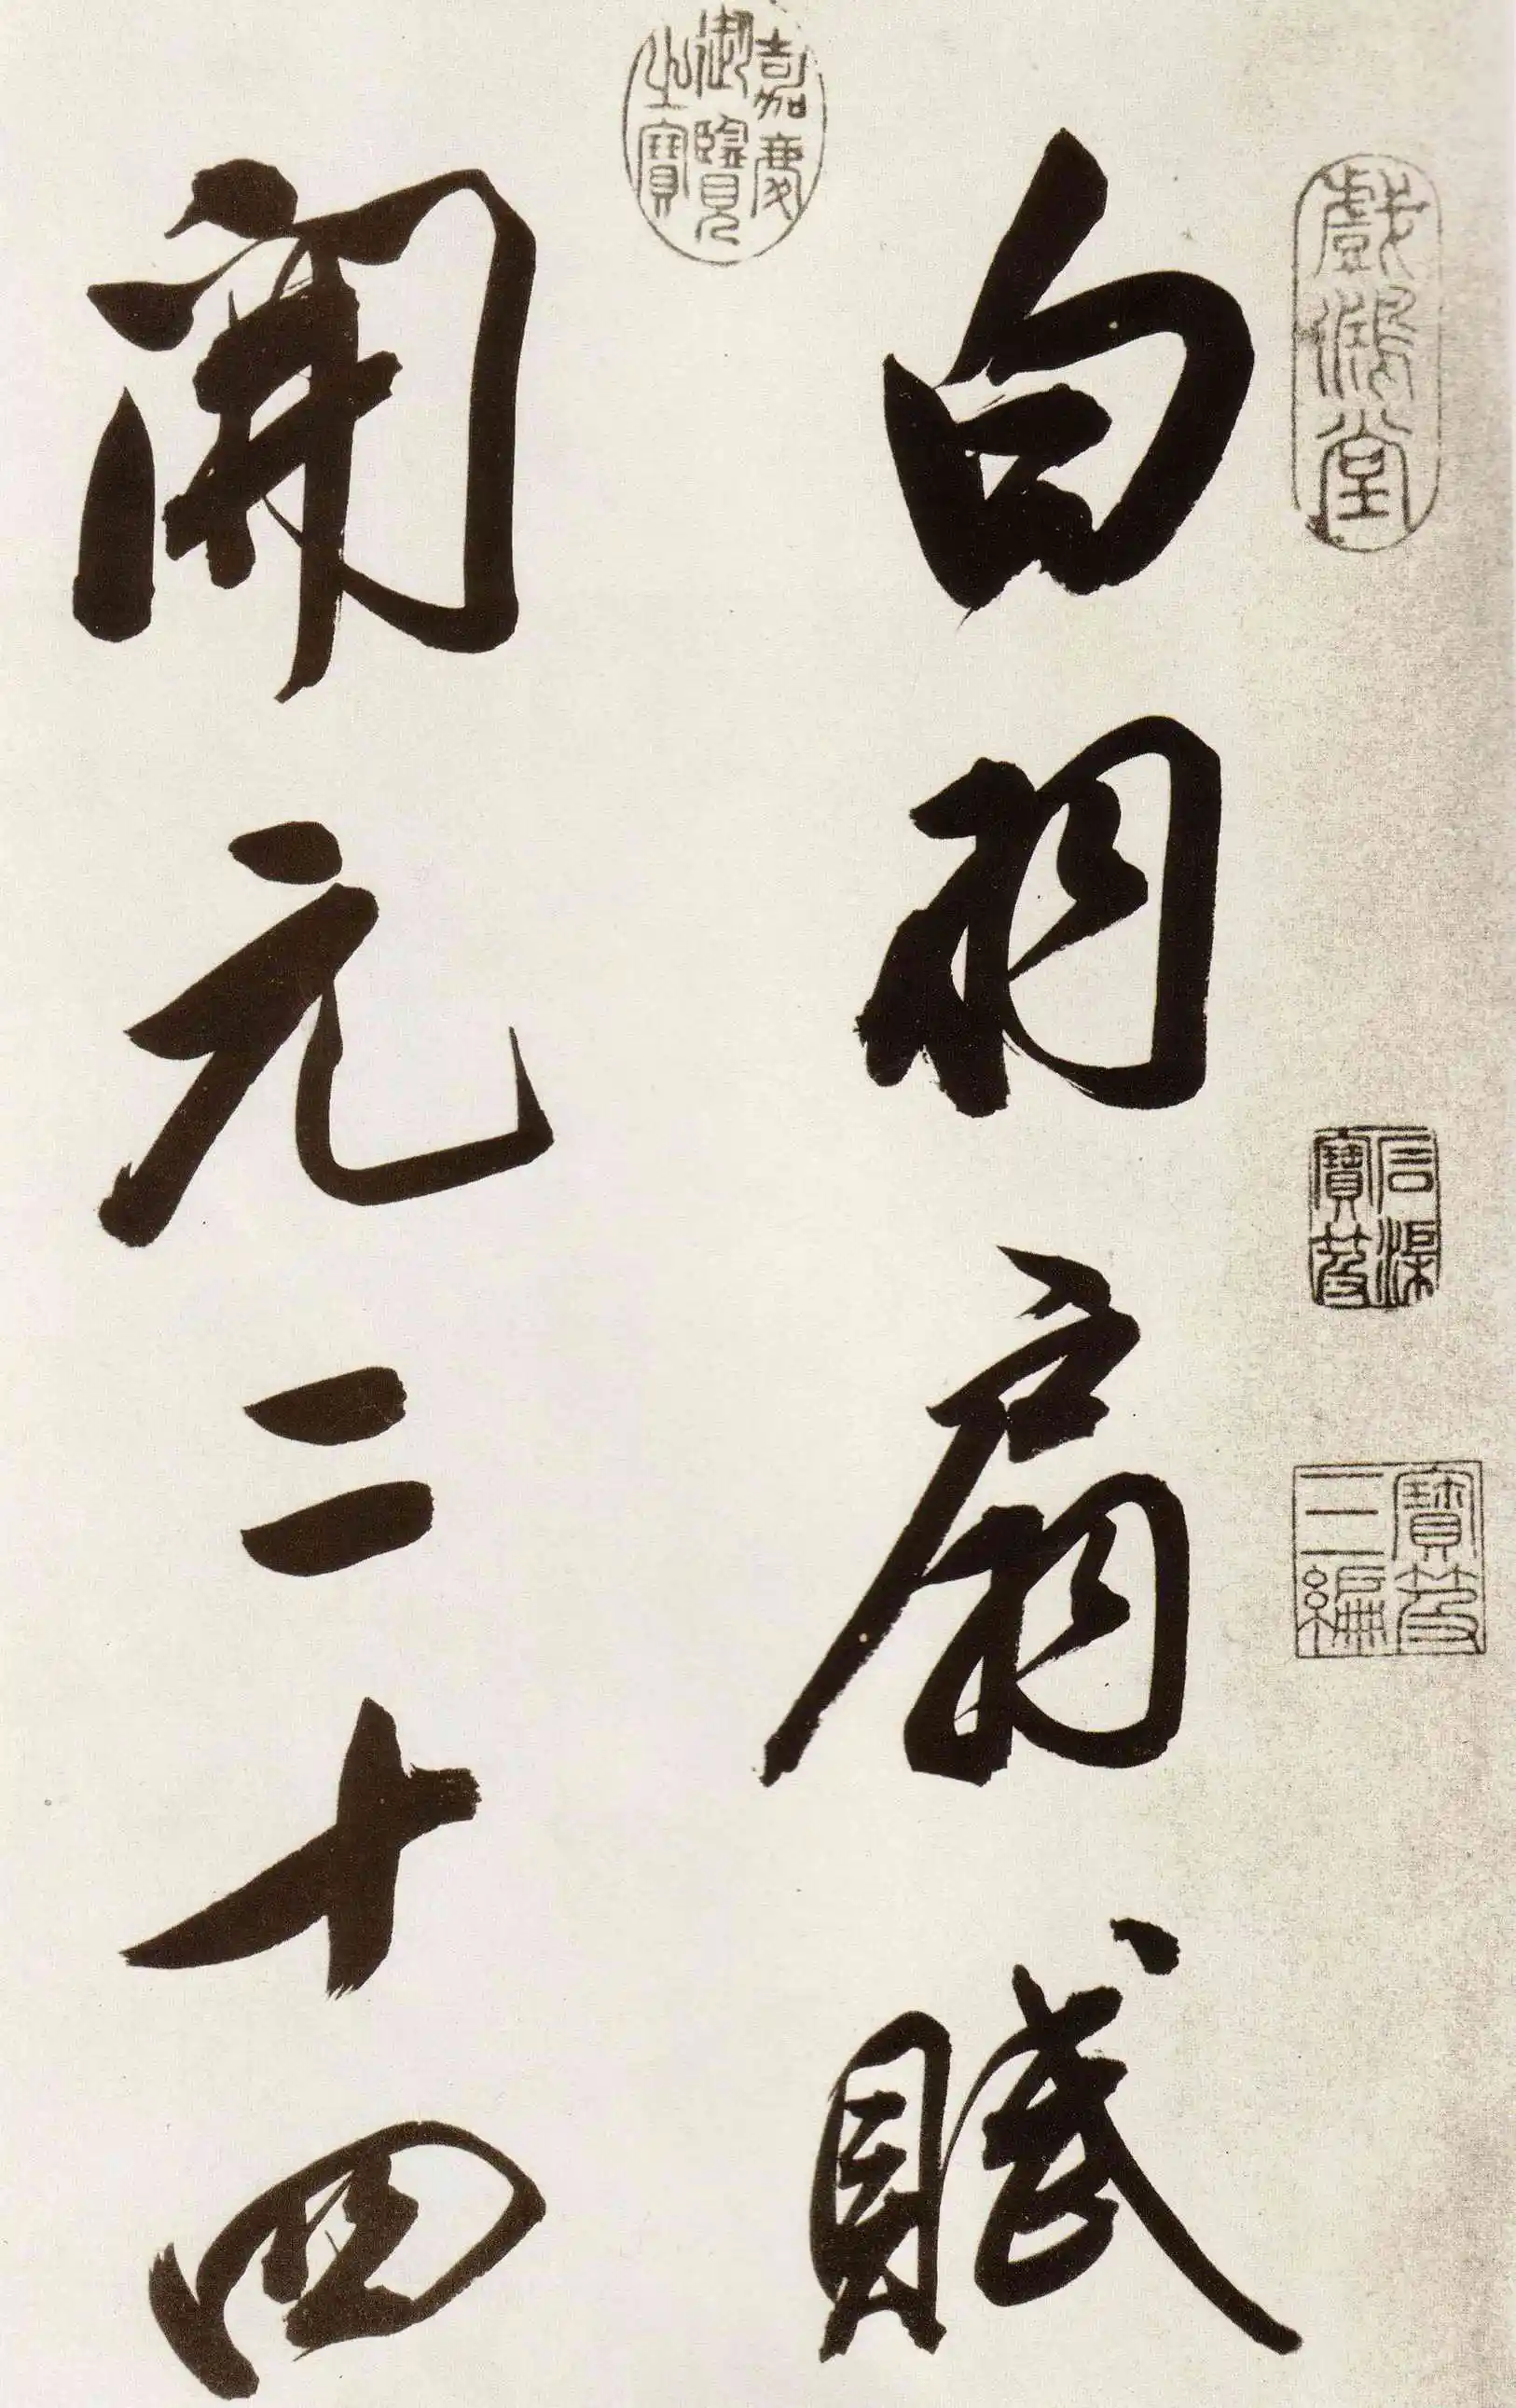 戲鴻堂
言溪寶笈
寶笈三編
白羽扇賦
嘉慶御覽之寶
開元二十四